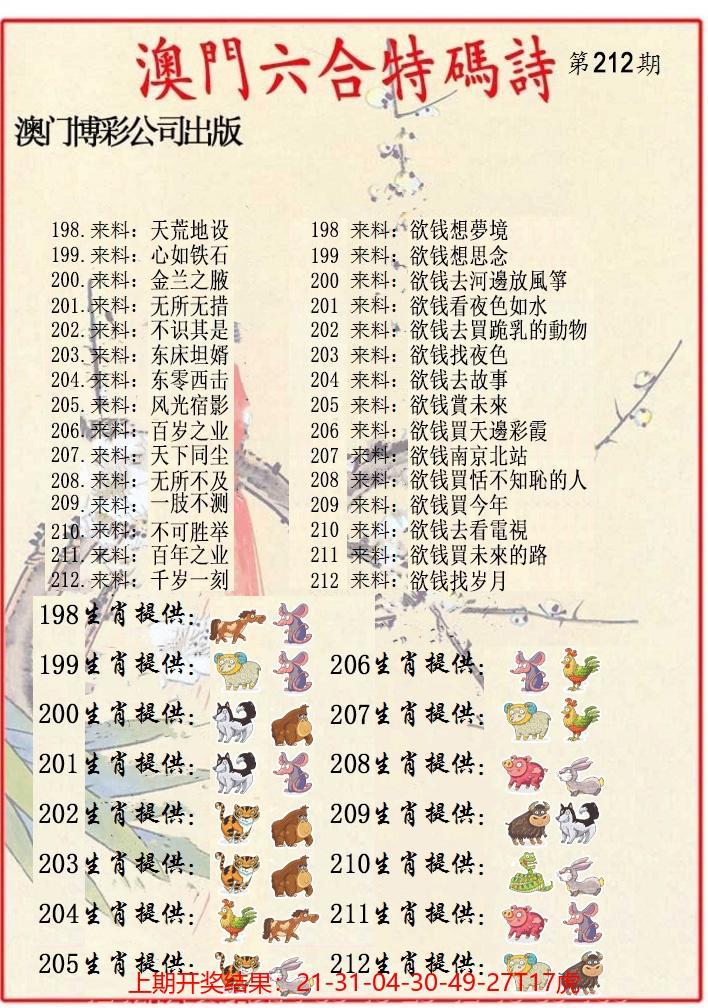 澳門六合特碼詩 第212期
澳门博彩公司出版
198.来料：天荒地设
199.来料：心如铁石
200.来料：金兰之腋
201.来料：无所无措
202.来料：不识其是
203.来料：东床坦婿
204.来料：东零西击
205.来料：风光宿影
206.来料：百岁之业
207.来料：天下同尘
208.来料：无所不及
209.来料：一肢不测
210.来料：不可胜举
211.来料：百年之业
212.来料：千岁一刻
198 来料：欲钱想夢境
199 来料：欲钱想思念
200 来料：欲钱去河邊放風箏
201 来料：欲钱看夜色如水
202 来料：欲钱去買跪乳的動物
203 来料：欲钱找夜色
204 来料：欲钱去故事
205 来料：欲钱賞未來
206 来料：欲钱買天邊彩霞
207 来料：欲钱南京北站
208 来料：欲钱買恬不知恥的人
209 来料：欲钱買今年
210 来料：欲钱去看電視
211 来料：欲钱買未來的路
212 来料：欲钱找岁月
198生肖提供：
199生肖提供：
200生肖提供：
201生肖提供：
202生肖提供：
203生肖提供：
204生肖提供：
205生肖提供：
206生肖提供：
207生肖提供：
208生肖提供：
209生肖提供：
210生肖提供：
211生肖提供：
212生肖提供：
上期开奖结果：21-31-04-30-49-27T17虎